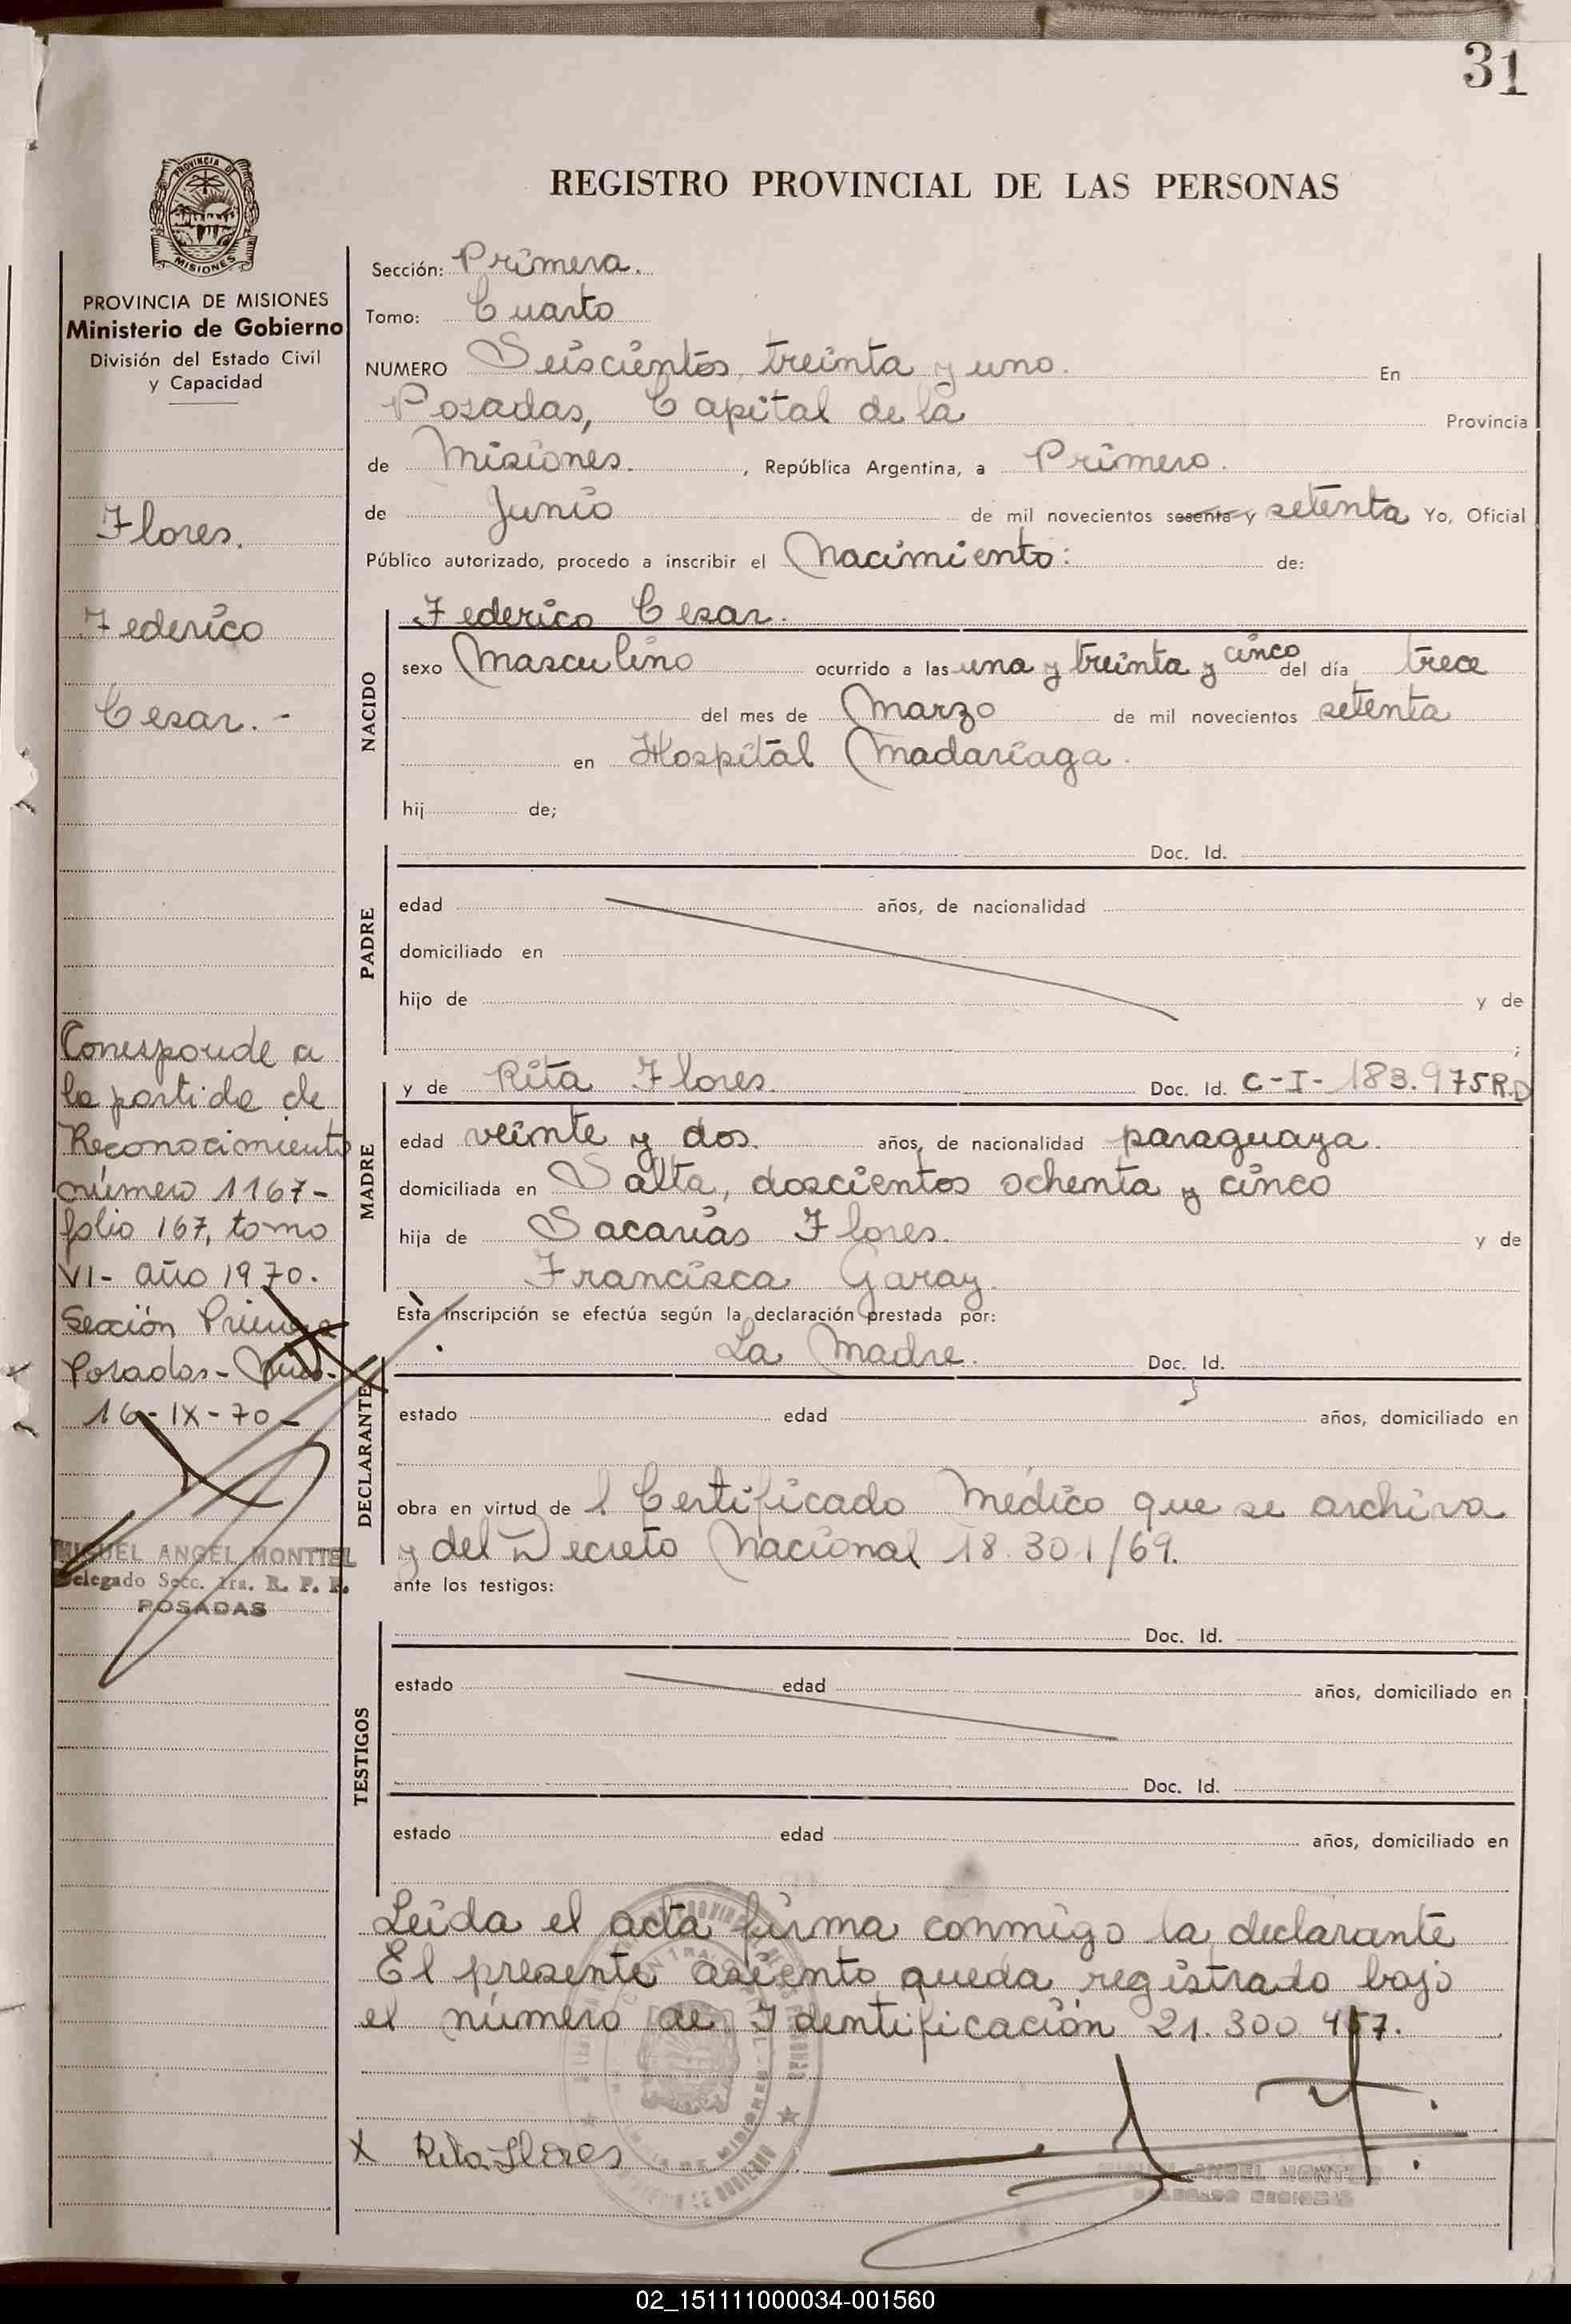 31
PROVINCIA DE
MISIONES
REGISTRO PROVINCIAL DE LAS PERSONAS
PROVINCIA DE MISIONES
Ministerio de Gobierno
División del Estado Civil
y Capacidad
Flores.
Federico
Cesar. -
Corresponde a
la partida de
Reconocimiento
número 1167-
folio 167, tomo
VI- año 1970.
Sección Primera
Posadas- Mnes.-
16-IX-70-
MIGUEL ANGEL MONTIEL
Delegado Secc. 1ra. R. P. P.
POSADAS
Sección: Primera.
Tomo: Cuarto
NUMERO Seiscientos treinta y uno. En
Posadas, Capital de la Provincia
de Misiones. , República Argentina, a Primero.
de Junio de mil novecientos sesenta y setenta Yo, Oficial
Público autorizado, procedo a inscribir el Nacimiento: de:
NACIDO
Federico Cesar.
sexo Masculino ocurrido a las una y treinta y cinco del día trece
del mes de Marzo de mil novecientos setenta
en Hospital Madariaga.
hij de;
PADRE
Doc. Id.
edad años, de nacionalidad
domiciliado en
hijo de y de
;
MADRE
y de Rita Flores. Doc. Id. C-I- 183.975R.D
edad veinte y dos. años, de nacionalidad paraguaya.
domiciliada en Salta, doscientos ochenta y cinco
hija de Sacarías Flores. y de
Francisca Garay.
Esta inscripción se efectúa según la declaración prestada por:
DECLARANTE
La Madre. Doc. Id.
estado edad años, domiciliado en
obra en virtud de l Certificado Médico que se archiva
y del Decreto Nacional 18.301/69.
ante los testigos:
TESTIGOS
Doc. Id.
estado edad años, domiciliado en
Doc. Id.
estado edad años, domiciliado en
Leída el acta firma conmigo la declarante
El presente asiento queda registrado bajo
el número de Identificación 21.300 457.
X Rita Flores
MIGUEL ANGEL MONTIEL
02_151111000034-001560